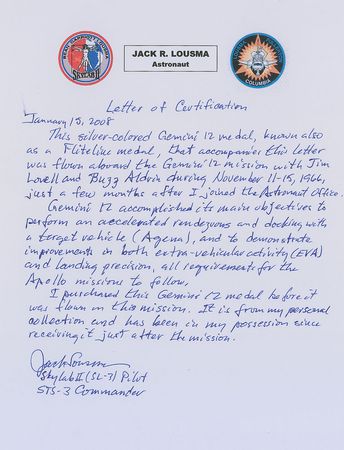 JACK R. LOUSMA
Astronaut
SKYLAB II
COLUMBIA
Letter of Certification
January 15, 2008
This silver-colored Gemini 12 medal, known also
as a Fliteline medal, that accompanies this letter
was flown aboard the Gemini 12 mission with Jim
Lovell and Buzz Aldrin during November 11-15, 1966,
just a few months after I joined the Astronaut Office.
Gemini 12 accomplished its main objectives to
perform an accelerated rendezvous and docking with
a target vehicle (Agena), and to demonstrate
improvements in both extra-vehicular activity (EVA)
and landing precision, all requirements for the
Apollo missions to follow.
I purchased this Gemini 12 medal before it
was flown on this mission. It is from my personal
collection and has been in my possession since
receiving it just after the mission.
Jack Lousma
Skylab II (SL-3) Pilot
STS-3 Commander